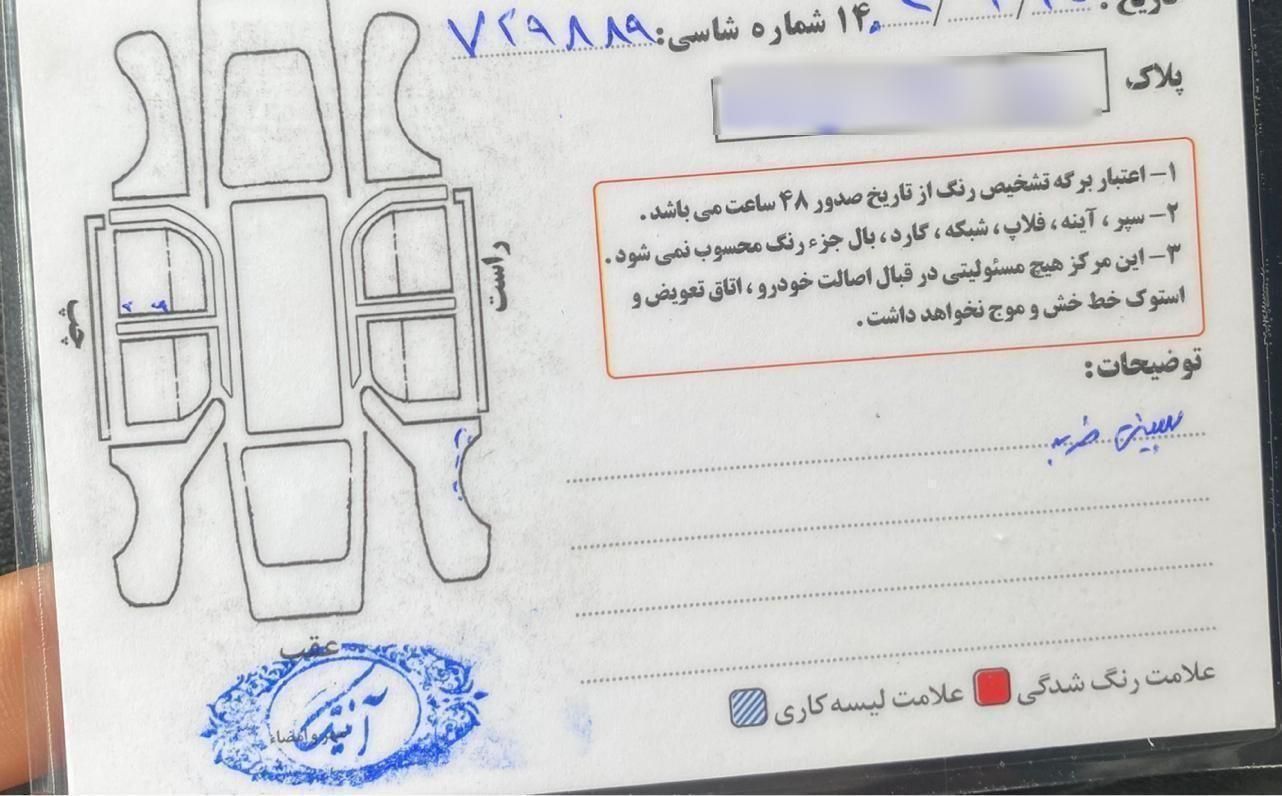 تاریخ:
۱۴ شماره شاسی: ۷۲۹۸۸۹
پلاک
۱- اعتبار برگه تشخیص رنگ از تاریخ صدور ۴۸ ساعت می باشد.
۲- سپر ، آینه ، فلاپ ، شبکه ، گارد ، بال جزء رنگ محسوب نمی شود.
۳- این مرکز هیچ مسئولیتی در قبال اصالت خودرو ، اتاق تعویض و
استوک خط خش و موج نخواهد داشت.
توضیحات:
راست
چپ
عقب
علامت رنگ شدگی
علامت لیسه کاری